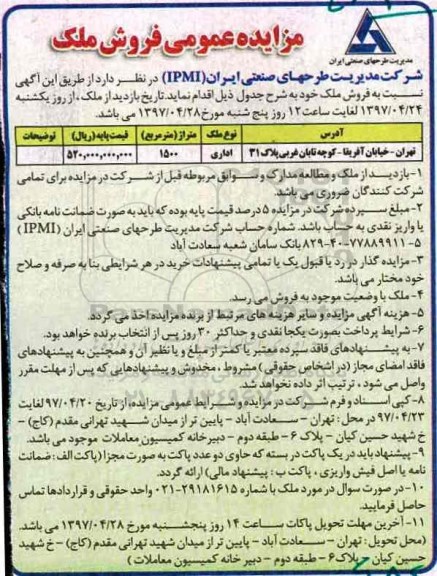 مدیریت طرحهای صنعتی ایران
مزایده عمومی فروش ملک
شرکت مدیریت طرحهای صنعتی ایران (IPMI) در نظر دارد از طریق این آگهی
نسبت به فروش ملک خود به شرح جدول ذیل اقدام نماید. تاریخ بازدید از ملک ، از روز یکشنبه
۱۳۹۷/۰۴/۲۴ لغایت ساعت ۱۲ روز پنج شنبه مورخ ۱۳۹۷/۰۴/۲۸ می باشد.
آدرس نوع ملک متراژ (مترمربع) قیمت پایه (ریال) توضیحات
تهران - خیابان آفریقا - کوچه تابان غربی پلاک ۳۱ اداری ۱۵۰۰ ۵۲۰,۰۰۰,۰۰۰,۰۰۰
۱- بازدید از ملک و مطالعه مدارک و سوابق مربوطه قبل از شرکت در مزایده برای تمامی
شرکت کنندگان ضروری می باشد.
۲- مبلغ سپرده شرکت در مزایده ۵ درصد قیمت پایه بوده که باید به صورت ضمانت نامه بانکی
یا واریز نقدی به حساب باشد. شماره حساب شرکت مدیریت طرحهای صنعتی ایران (IPMI )
۵-۸۲۹-۴۰-۷۷۸۸۹۹۱۱ بانک سامان شعبه سعادت آباد
۳- مزایده گذار در رد یا قبول یک یا تمامی پیشنهادات خرید در هر شرایطی بنا به صرفه و صلاح
خود مختار می باشد.
۴- ملک با وضعیت موجود به فروش می رسد.
۵- هزینه آگهی مزایده و سایر هزینه های مرتبط از برنده مزایده اخذ می گردد.
۶- شرایط پرداخت بصورت یکجا نقدی و حداکثر ۳۰ روز پس از انتخاب برنده خواهد بود.
۷- به پیشنهادهای فاقد سپرده معتبر یا کمتر از مبلغ و یا نظیر آن و همچنین به پیشنهادهای
فاقد امضای مجاز (در اشخاص حقوقی) مشروط ، مخدوش و پیشنهادهایی که پس از مهلت مقرر
واصل می شود ، ترتیب اثر داده نخواهد شد.
۸- کپی اسناد و فرم شرکت در مزایده و شرایط عمومی مزایده، از تاریخ ۹۷/۰۴/۲۰ لغایت
۹۷/۰۴/۲۳ در محل : تهران - سعادت آباد - پایین تر از میدان شهید تهرانی مقدم (کاج) -
خ شهید حسین کیان - پلاک ۶ - طبقه دوم - دبیرخانه کمیسیون معاملات موجود می باشد.
۹- پیشنهاد باید در یک پاکت در بسته که حاوی دو عدد پاکت به صورت مجزا (پاکت الف : ضمانت
نامه یا اصل فیش واریزی ، پاکت ب : پیشنهاد مالی) ارائه گردد.
۱۰- در صورت سوال در مورد ملک با شماره ۲۹۱۸۱۶۱۵-۰۲۱ واحد حقوقی و قراردادها تماس
حاصل فرمایید.
۱۱- آخرین مهلت تحویل پاکات ساعت ۱۴ روز پنجشنبه مورخ ۱۳۹۷/۰۴/۲۸ می باشد.
(محل تحویل : تهران - سعادت آباد - پایین تر از میدان شهید تهرانی مقدم (کاج) - خ شهید
حسین کیان - پلاک ۶ - طبقه دوم - دبیر خانه کمیسیون معاملات )